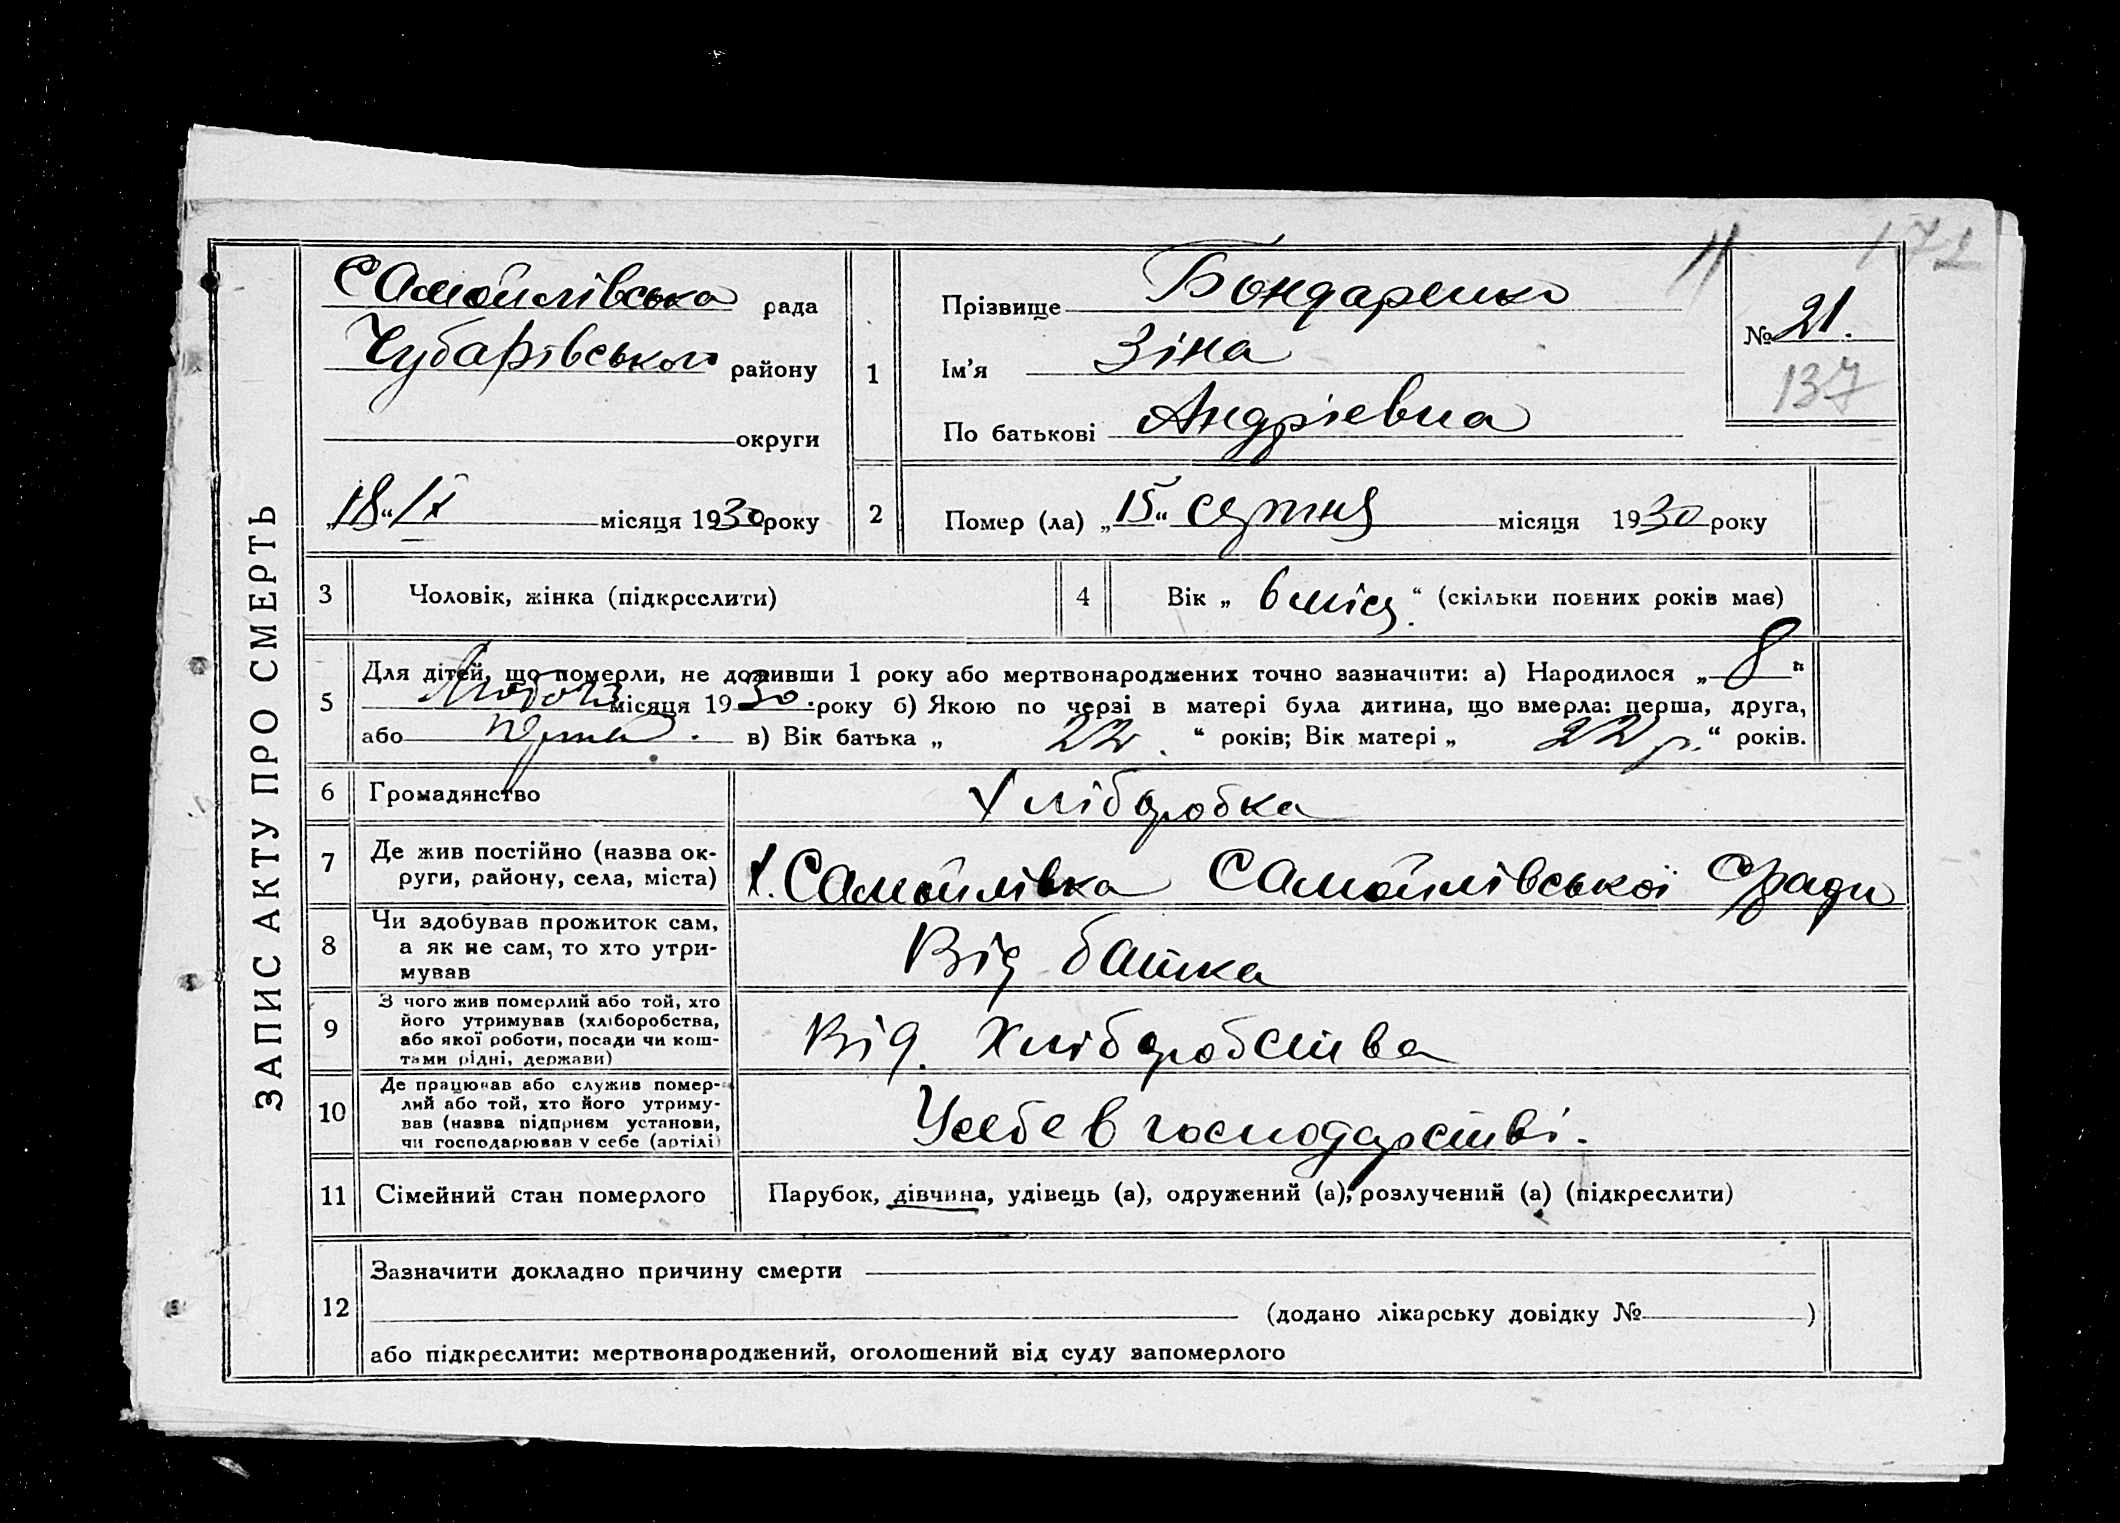 ЗАПИС АКТУ ПРО СМЕРТЬ
11 172
Самойлівська рада
Чубарівського району
округи
„18“ IX місяця 1930 року
1
Прізвище Бондаренко
Ім'я Зіна
По батькові Андріевна
№ 21.
137
2 Помер (ла) „15“ серпня місяця 1930 року
3 Чоловік, жінка (підкреслити)
4 Вік „6 місц.“ (скільки повних років має)
5 Для дітей, що померли, не доживши 1 року або мертвонароджених точно зазначити: а) Народилося „8“
Лютого місяця 1930 року б) Якою по черзі в матері була дитина, що вмерла: перша, друга,
або перша. в) Вік батька „22.“ років; Вік матері „22 р.“ років.
6 Громадянство Хліборобка
7 Де жив постійно (назва ок-
руги, району, села, міста) х. Самойлівка Самойлівської с/ради
8 Чи здобував прожиток сам,
а як не сам, то хто утри-
мував Від батька
9 З чого жив померлий або той, хто
його утримував (хліборобства,
або якої роботи, посади чи кош-
тами рідні, держави) Від Хліборобства
10 Де працював або служив помер-
лий або той, хто його утриму-
вав (назва підприєм установи,
чи господарював у себе (артілі) Усебе в господарстві.
11 Сімейний стан померлого Парубок, дівчина, удівець (а), одружений (а), розлучений (а) (підкреслити)
12 Зазначити докладно причину смерти
(додано лікарську довідку № )
або підкреслити: мертвонароджений, оголошений від суду запомерлого